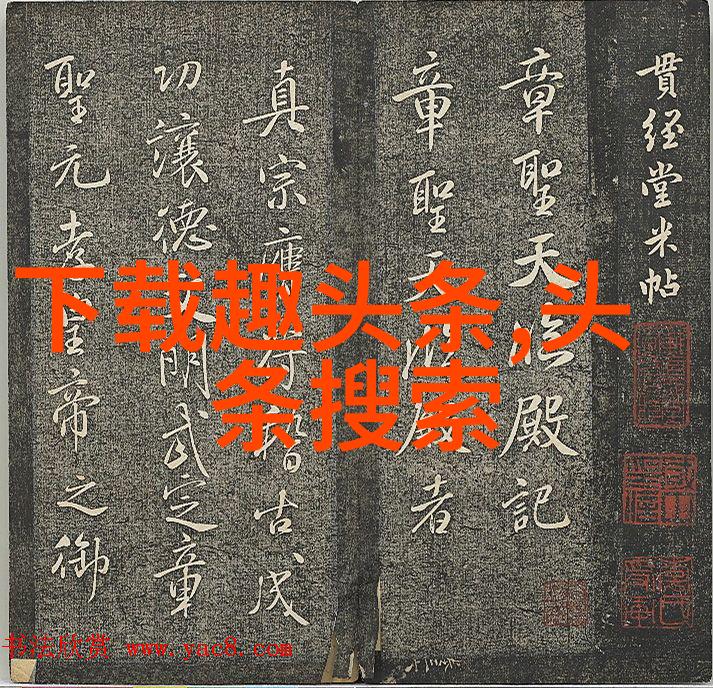 貫经堂米帖
章聖天临殿記
章聖天臨殿者
真宗膺符稽古成
功讓德文明武定章
聖元孝皇帝之御
下载趣头条,头
条搜索
书法欣赏 www.yac8.com